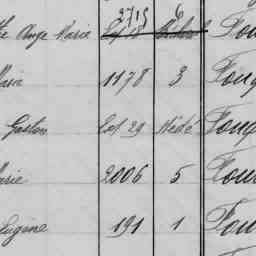 Ange Marie 2715 6 Fou
Marie 1178 3 Foug
Gaston Lot 29 Hédé Foug
Marie 2006 5 Foug
Eugène 191 1 Foug